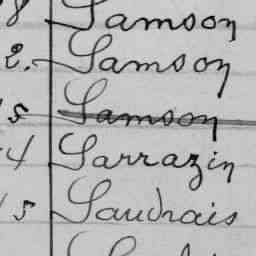 8 Samson
2. Samson
5 Samson
4 Sarrazin
5 Saudrais